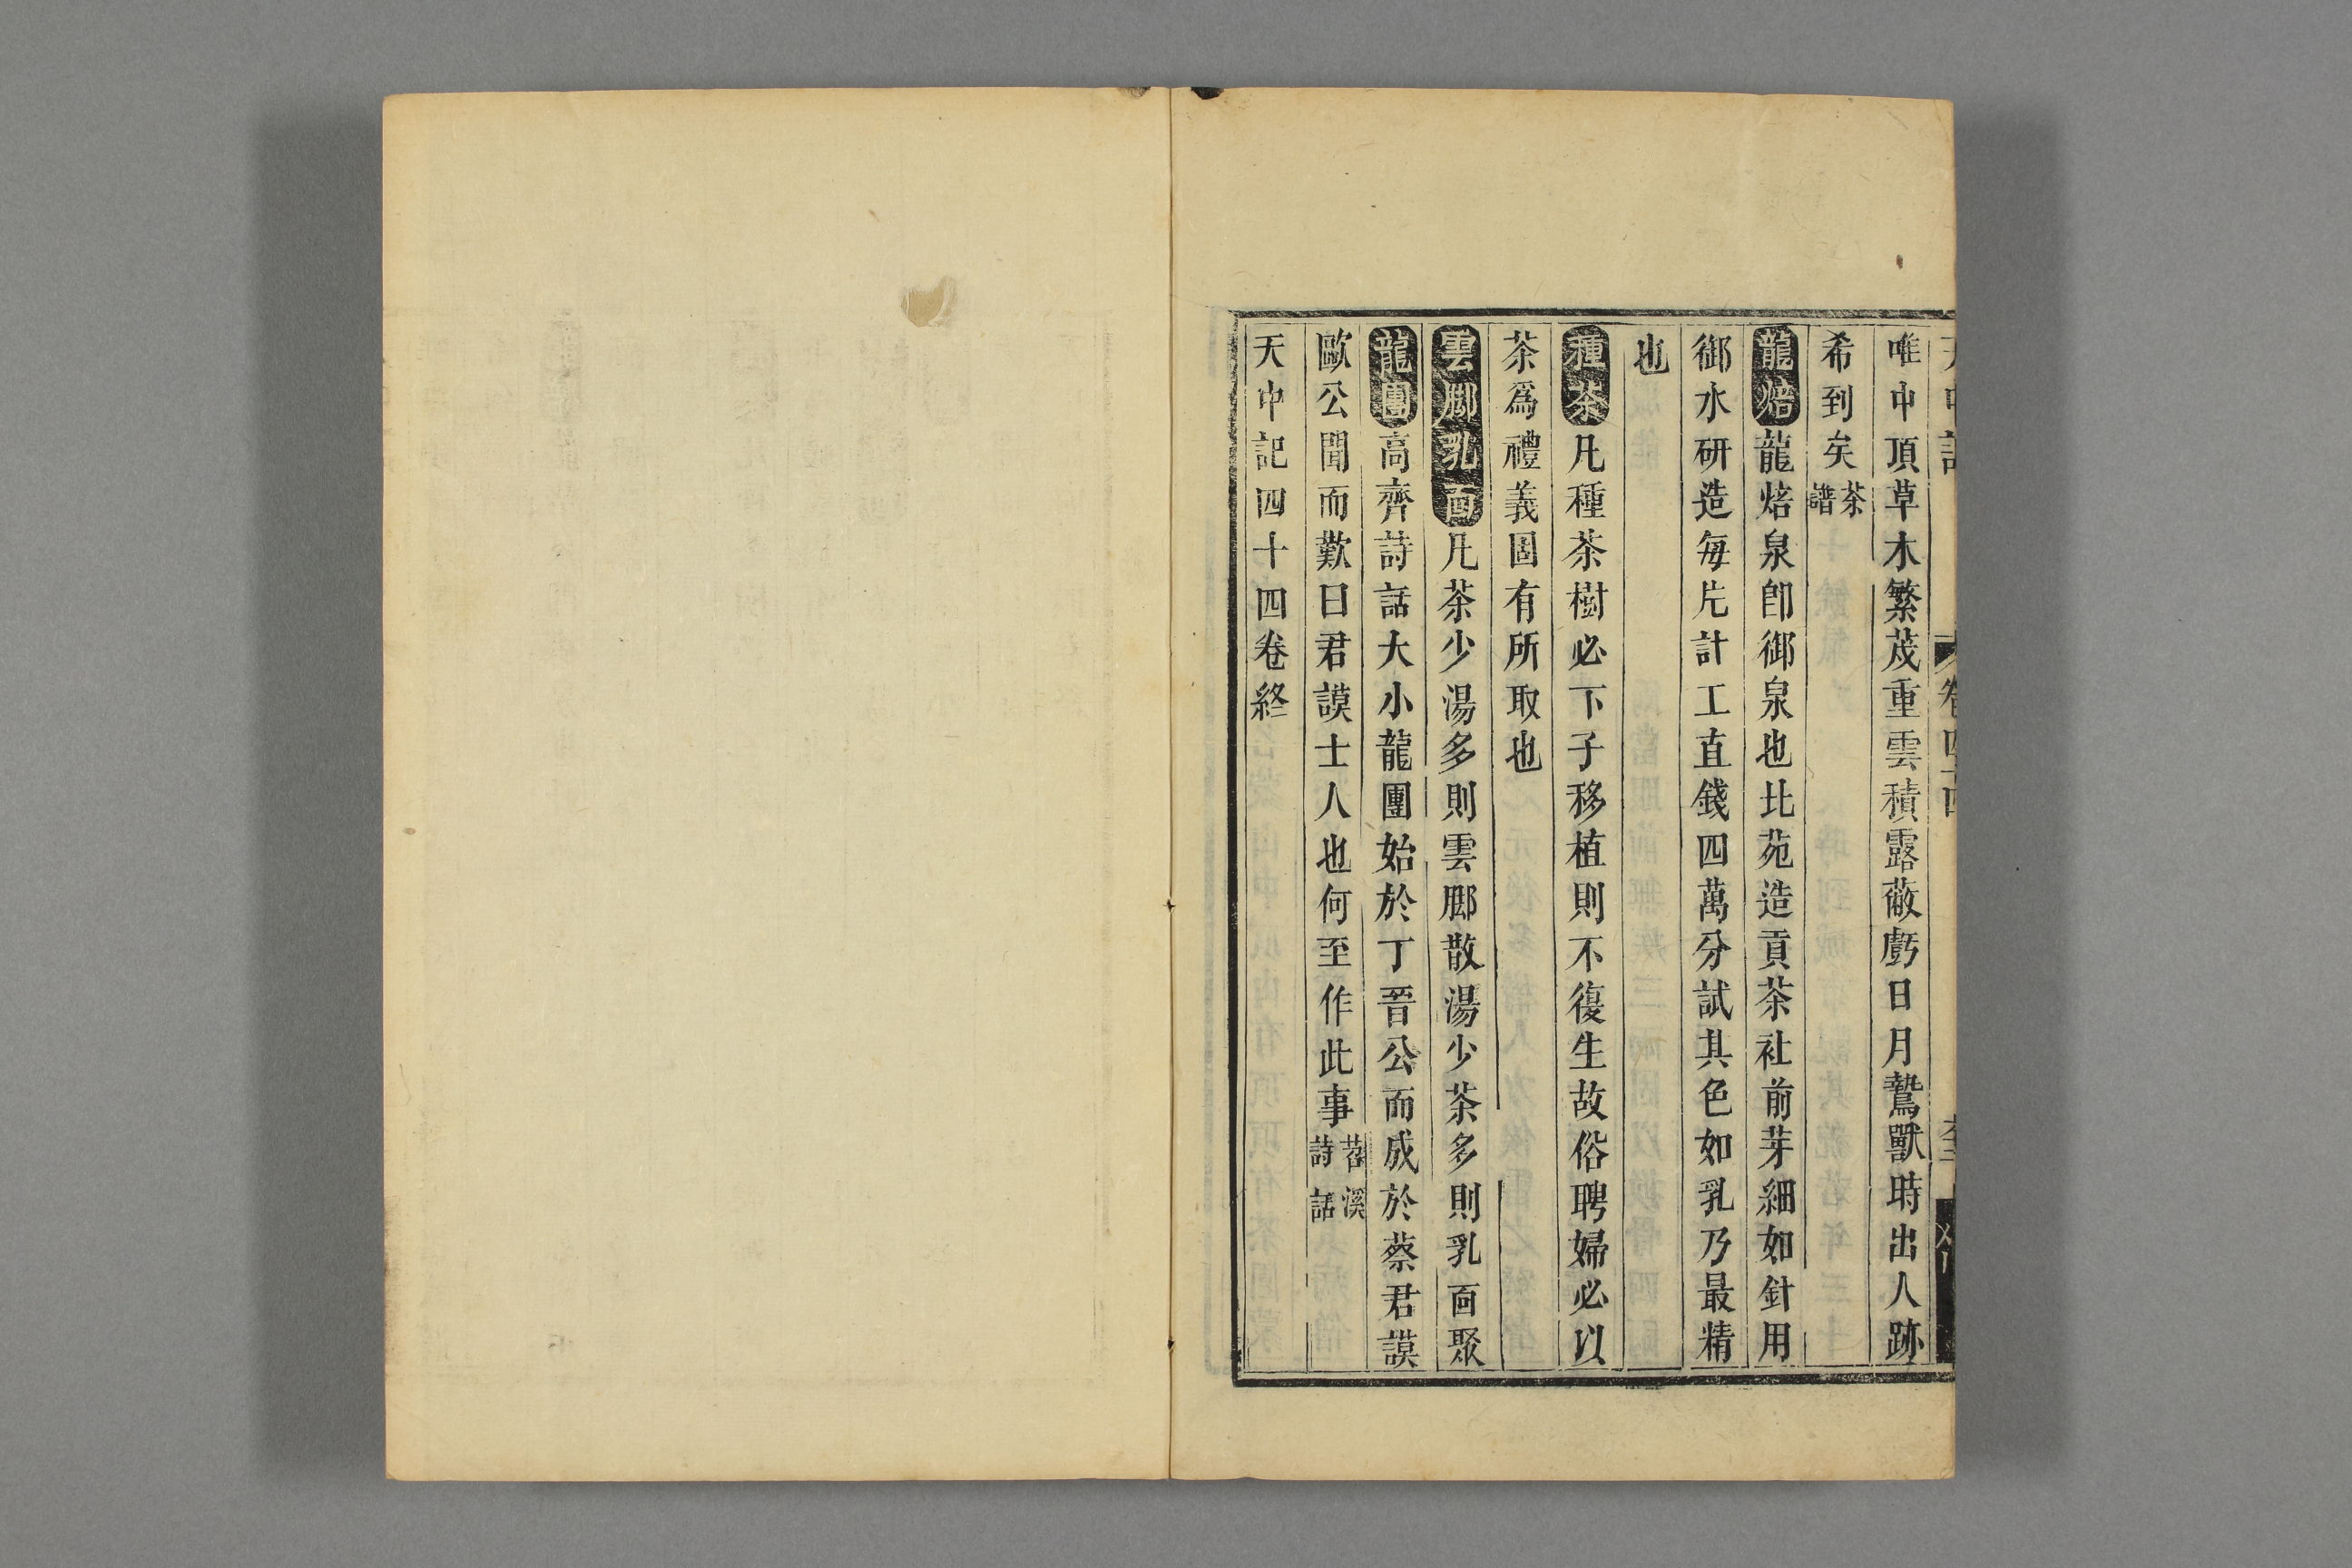 唯中頂草木繁茂重雲積露蔽虧日月鷙獸時出人跡
希到矣茶譜
龍焙龍焙泉卽御泉也北苑造貢茶社前芽細如針用
御水研造每片計工直錢四萬分試其色如乳乃最精
也
種茶凡種茶樹必下子移植則不復生故俗聘婦必以
茶爲禮義固有所取也
雲脚乳面凡茶少湯多則雲脚散湯少茶多則乳面聚
龍團高齊詩話大小龍團始於丁晉公而成於蔡君謨
歐公聞而歎曰君謨士人也何至作此事苕溪詩話
天中記四十四卷終